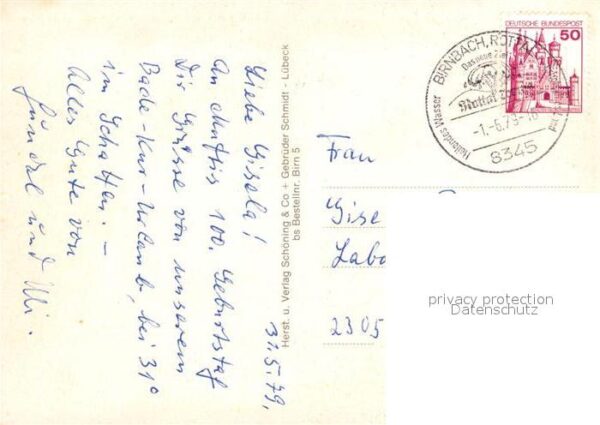 31.5.79,
Liebe Gisela!
An Muttis 100. Geburtstag
Dir Grüsse von unserem
Bade-Kur-Urlaub, bei 31°
im Schatten. –
Alles Gute von
und Uli.
Herst. u. Verlag Schöning & Co + Gebrüder Schmidt - Lübeck
bs Bestellnr. Birn 5
DEUTSCHE BUNDESPOST
50
BIRNBACH, ROTTAL
Heilendes Wasser
Das neue
Rottal
-1.-6.79-18
8345
Frau
Gise
Labo
2305
privacy protection
Datenschutz